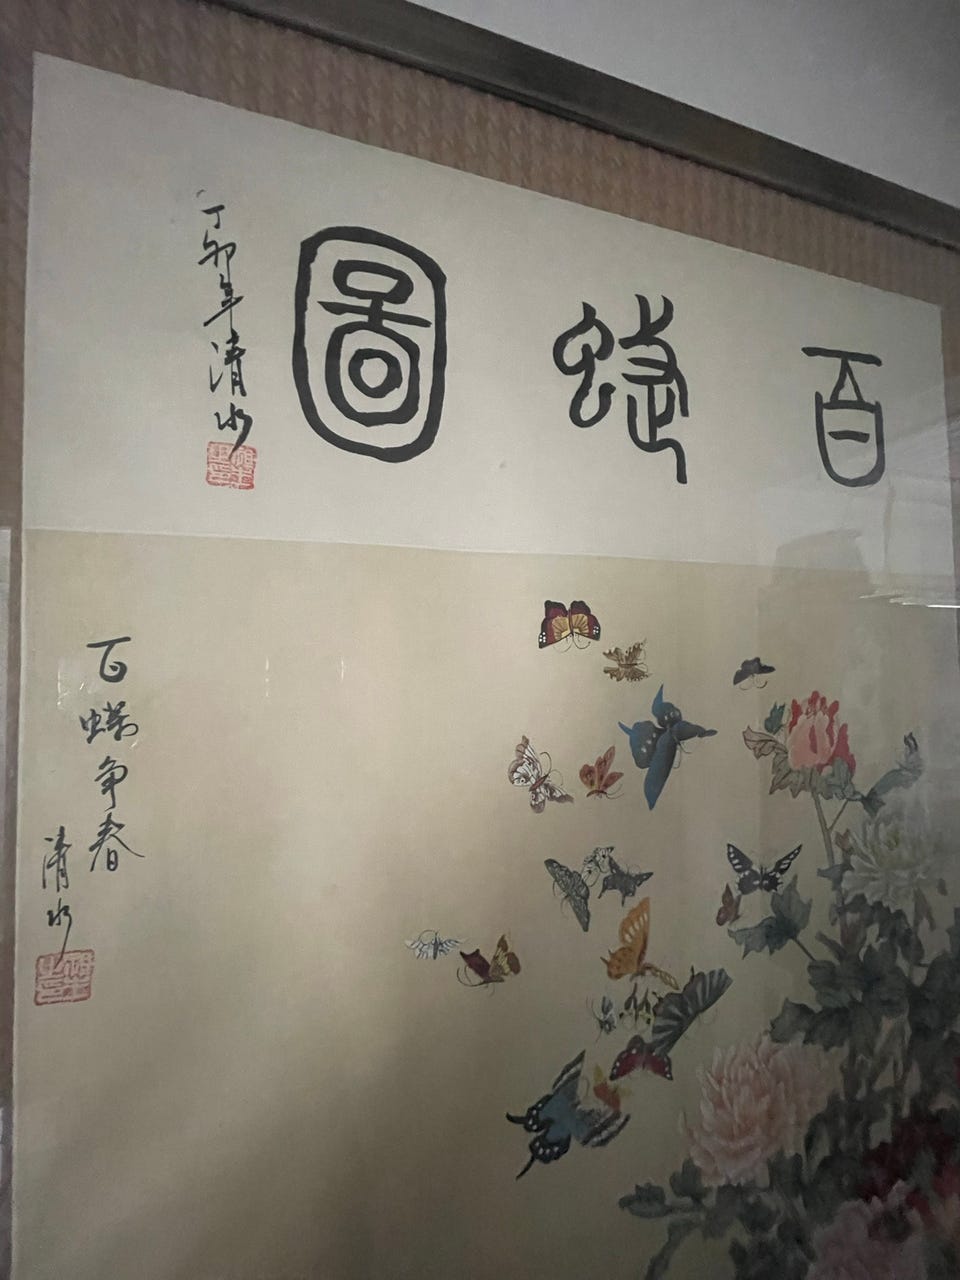 百蜨圖
丁卯年清水
百蝶争春
清水